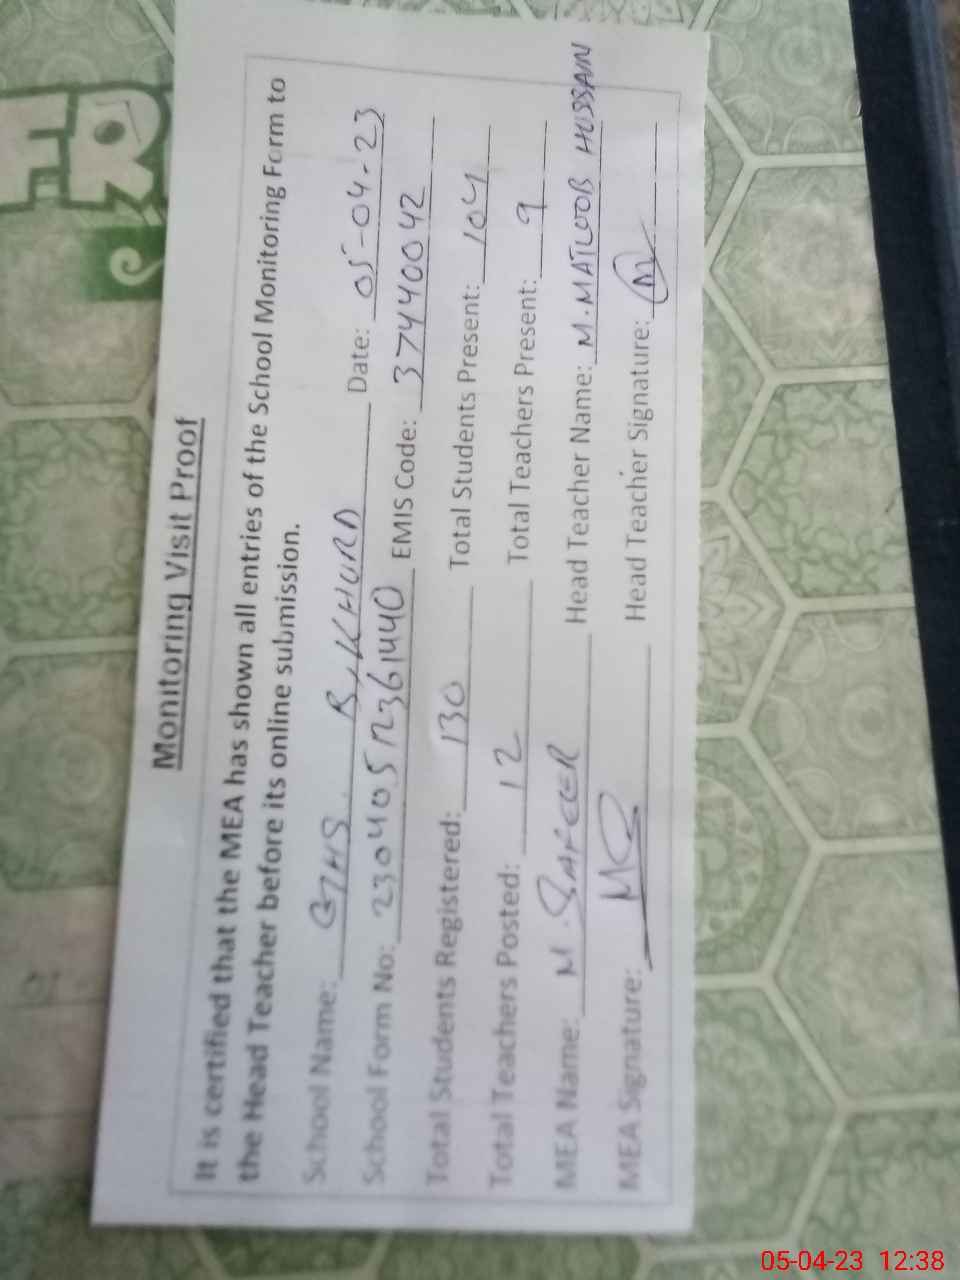 Monitoring Visit Proof
It is certified that the MEA has shown all entries of the School Monitoring Form to
the Head Teacher before its online submission.
School Name: GHS B, KHURD Date: 05-04-23
School Form No: EMIS Code: 37440042
Total Students Registered: 130 Total Students Present: 104
Total Teachers Posted: 12 Total Teachers Present: 9
MEA Name: M. SAFEER Head Teacher Name: M. MATLOOB HUSSAIN
MEA Signature: Head Teacher Signature:
05-04-23 12:38